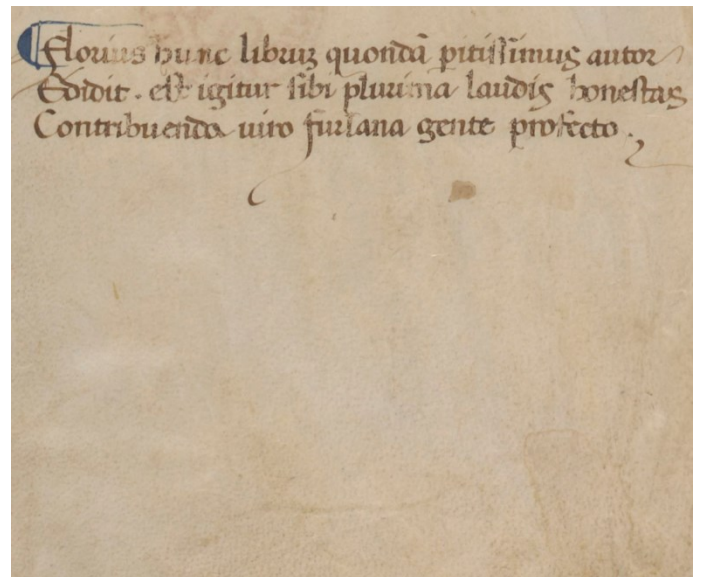 Florius hunc libruꝫ quondā ꝑitissimus autor
Edidit . est igitur sibi plurima laudis honestas
Contribuenda uiro furlana gente profecto .